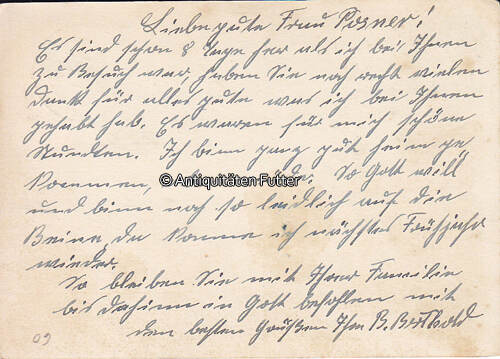 Liebe gute Frau Posner!
Es sind schon 8 Tage her als ich bei Ihnen
zu Besuch war, haben Sie noch recht vielen
Dank für alles gute was ich bei Ihnen
gehabt hab. Es waren für mich schöne
Stundten. Ich binn ganz gut heim ge
kommen,
© Antiquitäten Futter
So Gott will
und binn noch so leidlich auf die
Beine, da komme ich nächstes Frühjahr
wieder.
So bleiben Sie mit Ihrer Familie
bis dahinn in Gott befohlen mit
den besten Grüßen Ihre B. Berthold
09